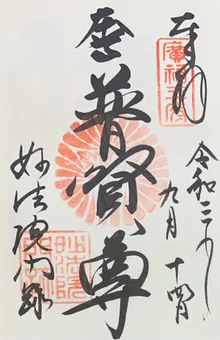 奉拝
令和三年
九月 十四日
普賢尊
妙法院門跡